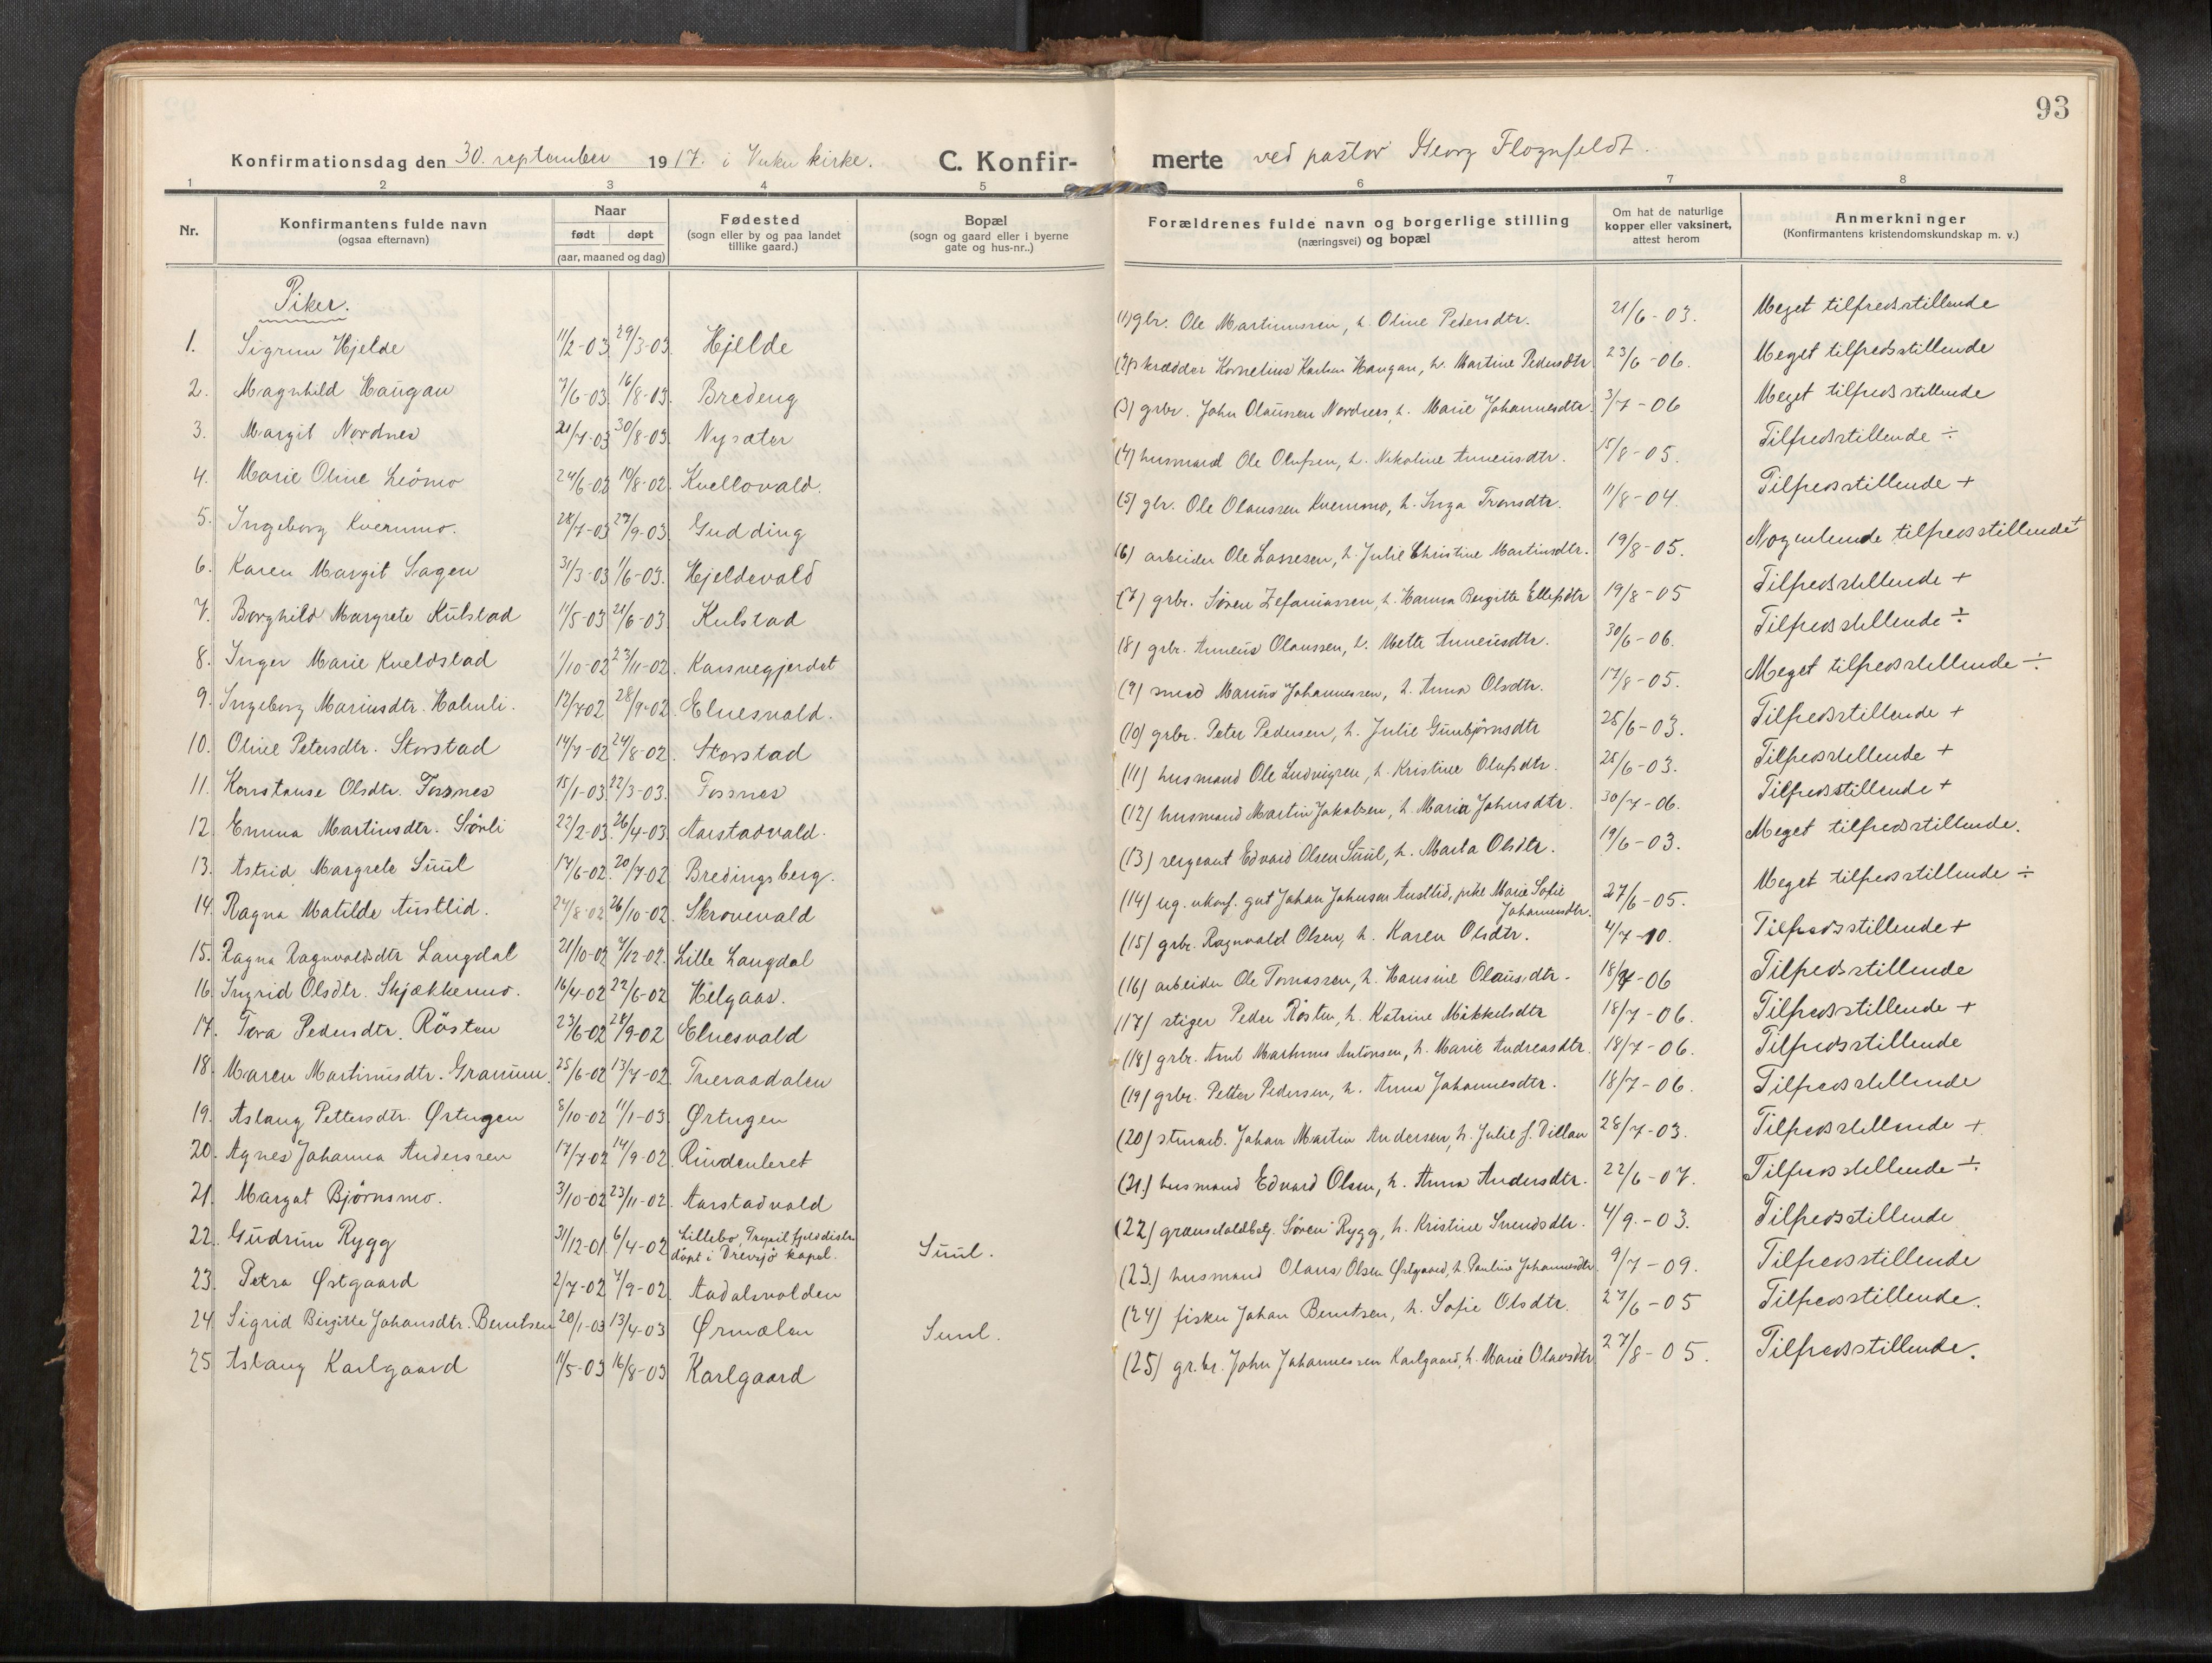 93
Konfirmationsdag den 30. september 1917. i Vuku kirke. C. Konfir-
merte ved pastor Georg Flognfeldt.
1 2 3 4 5 6 7 8
Nr. Konfirmantens fulde navn (ogsaa efternavn) Naar født døpt (aar, maaned og dag) Fødested (sogn eller by og paa landet tillike gaard.) Bopæl (sogn og gaard eller i byerne gate og hus-nr..) Forældrenes fulde navn og borgerlige stilling (næringsvei) og bopæl Om hat de naturlige kopper eller vaksinert, attest herom Anmerkninger (Konfirmantens kristendomskundskap m. v.)
Piker.
1. Sigrun Hjelde 11/2-03 29/3-03. Hjelde (1) gbr. Ole Martinussen, h. Oline Pedersdtr. 21/6-03. Meget tilfredsstillende
2. Magnhild Haugan 7/6-03 16/8-03. Bredeng (2) skrædder Kornelius Karlsen Haugan, h. Martine Pedersdtr 23/6-06. Meget tilfredsstillende
3. Margit Nordnes 21/7-03 30/8-03. Nysæter (3) grbr. John Olaussen Nordnes, h. Marie Johannesdtr. 3/7-06 Meget tilfredsstillende
4. Marie Oline Leömo 24/6-02 10/8-02. Kvellovald. (4) husmand Ole Olufsen, h. Nikoline Anneusdtr. 15/8-05. Tilfredsstillende ÷
5. Ingeborg Kvernmo. 28/7-03 27/9-03. Gudding (5) gbr. Ole Olaussen Kvernmo, h. Inga Tronsdtr. 11/8-04. Tilfredsstillende +
6. Karen Margit Sagen 31/3-03 1/6-03. Hjeldevald (6) arbeider Ole Lassesen, h. Julie Christine Martinsdtr. 19/8-05. Nogenlunde tilfredsstillende +
7. Borghild Margrete Kulstad 11/5-03 21/6-03. Kulstad (7) grbr. Søren Zefaniassen, h. Hanna Bergitte Ellefsdtr 19/8-05 Tilfredsstillende +
8. Inger Marie Kveldstad 1/10-02 23/11-02. Karsvegjerdet (8) grbr. Anneus Olaussen, h. Mette Anneusdtr. 30/6-06. Tilfredsstillende ÷
9. Ingeborg Mariusdtr. Holmli. 12/7 02 28/9-02. Elnesvald. (9) smed Marius Johannessen, h. Anna Olsdtr. 17/8-05. Meget tilfredsstillende ÷
10. Oline Petersdtr. Storstad 14/7-02 24/8-02. Storstad (10) grbr. Peter Pedersen, h. Julie Gunbjørnsdtr 25/6-03. Tilfredsstillende +
11. Konstanse Olsdtr. Fossnes 15/1-03. 22/3-03. Fossnes (11) husmand Ole Ludvigsen, h. Kristine Olufsdtr. 25/6-03. Tilfredsstillende +
12. Emma Martinsdtr. Sørli 22/2-03. 26/4-03 Aarstadvald. (12) husmand Martin Jakobsen, h. Maria Johnsdtr. 30/7-06. Tilfredsstillende +
13. Astrid Margrete Suul 14/6-02. 20/7-02 Bredingsberg. (13) sergeant Edvard Olsen Suul, h. Marta Olsdtr. 19/6-03. Meget tilfredsstillende.
14. Ragna Matilde Austlid. 24/8-02 26/10-02. Skrovevald (14) ug. ukonf. gut Johan Johnsen Austlid, pike Marie Sofie 27/6-05. Meget tilfredsstillende ÷
Johannesdtr.
15. Ragna Ragnvaldsdtr Langdal 21/10-02 7/12-02. Lille Langdal (15) grbr. Ragnvald Olsen, h. Karen Olsdtr. 4/7-10. Tilfredsstillende +
16. Ingrid Olsdtr. Skjækkermo. 16/4-02 22/6-02 Helgaas. (16) arbeider Ole Tomassen, h. Hansine Olausdtr. 18/7-06 Tilfredsstillende
17. Tora Pedersdtr. Røsten 23/6-02 28/9-02 Elnesvald (17) stiger Peder Røsten, h. Katrine Mikkelsdtr 18/7-06. Tilfredsstillende +
18. Maren Martinusdtr. Granum. 25/6-02 13/7-02. Tveraadalen (18) grbr. Arnt Martinus Antonsen, h. Marie Andreasdtr. 18/7-06. Tilfredsstillende
19. Aslaug Pettersdtr. Ørtugen 8/10-02 11/1-03. Ørtugen (19) grbr. Petter Pedersen, h. Anna Johannesdtr. 18/7-06. Tilfredsstillende
20. Agnes Johanna Anderssen 17/7-02 14/9-02. Rindenleret (20) stenarb. Johan Martin Andersen, h. Julie f. Dillan 28/7-03. Tilfredsstillende +
21. Margot Bjørnsmo. 3/10-02 23/11-02. Aarstadvald (21.) husmand Edvard Olsen, h. Anna Andersdtr. 22/6-07. Tilfredsstillende ÷
22. Gudrun Rygg 31/12-01. 6/4-02 Lillebo, Trysil fjelddistr. døpt i Drevsjø kapel. Suul. (22) grænsetoldbetj. Søren Rygg, h. Kristine Svendsdtr. 4/9.-03. Tilfredsstillende
23. Petra Østgaard 2/7-02 7/9-02. Aadalsvolden (23.) husmand Olaus Olsen Østgaard, h. Pauline Johannesdtr. 9/7-09. Tilfredsstillende
24. Sigrid Birgitte Johansdtr. Berntsen 20/1-03 13/4-03 Ørmelen Suul. (24) fisker Johan Berntsen, h. Sofie Olsdtr. 27/6-05 Tilfredsstillende.
25 Aslaug Karlgaard 11/5-03 16/8-03 Karlgaard (25) gr.br. John Johannessen Karlgaard, h. Marie Olavsdtr 27/8-05. Tilfredsstillende.